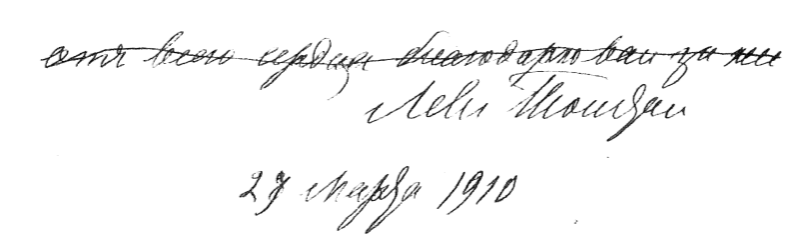 отъ всего сердца благодарю вас за
Левъ Толстой
27 марта 1910